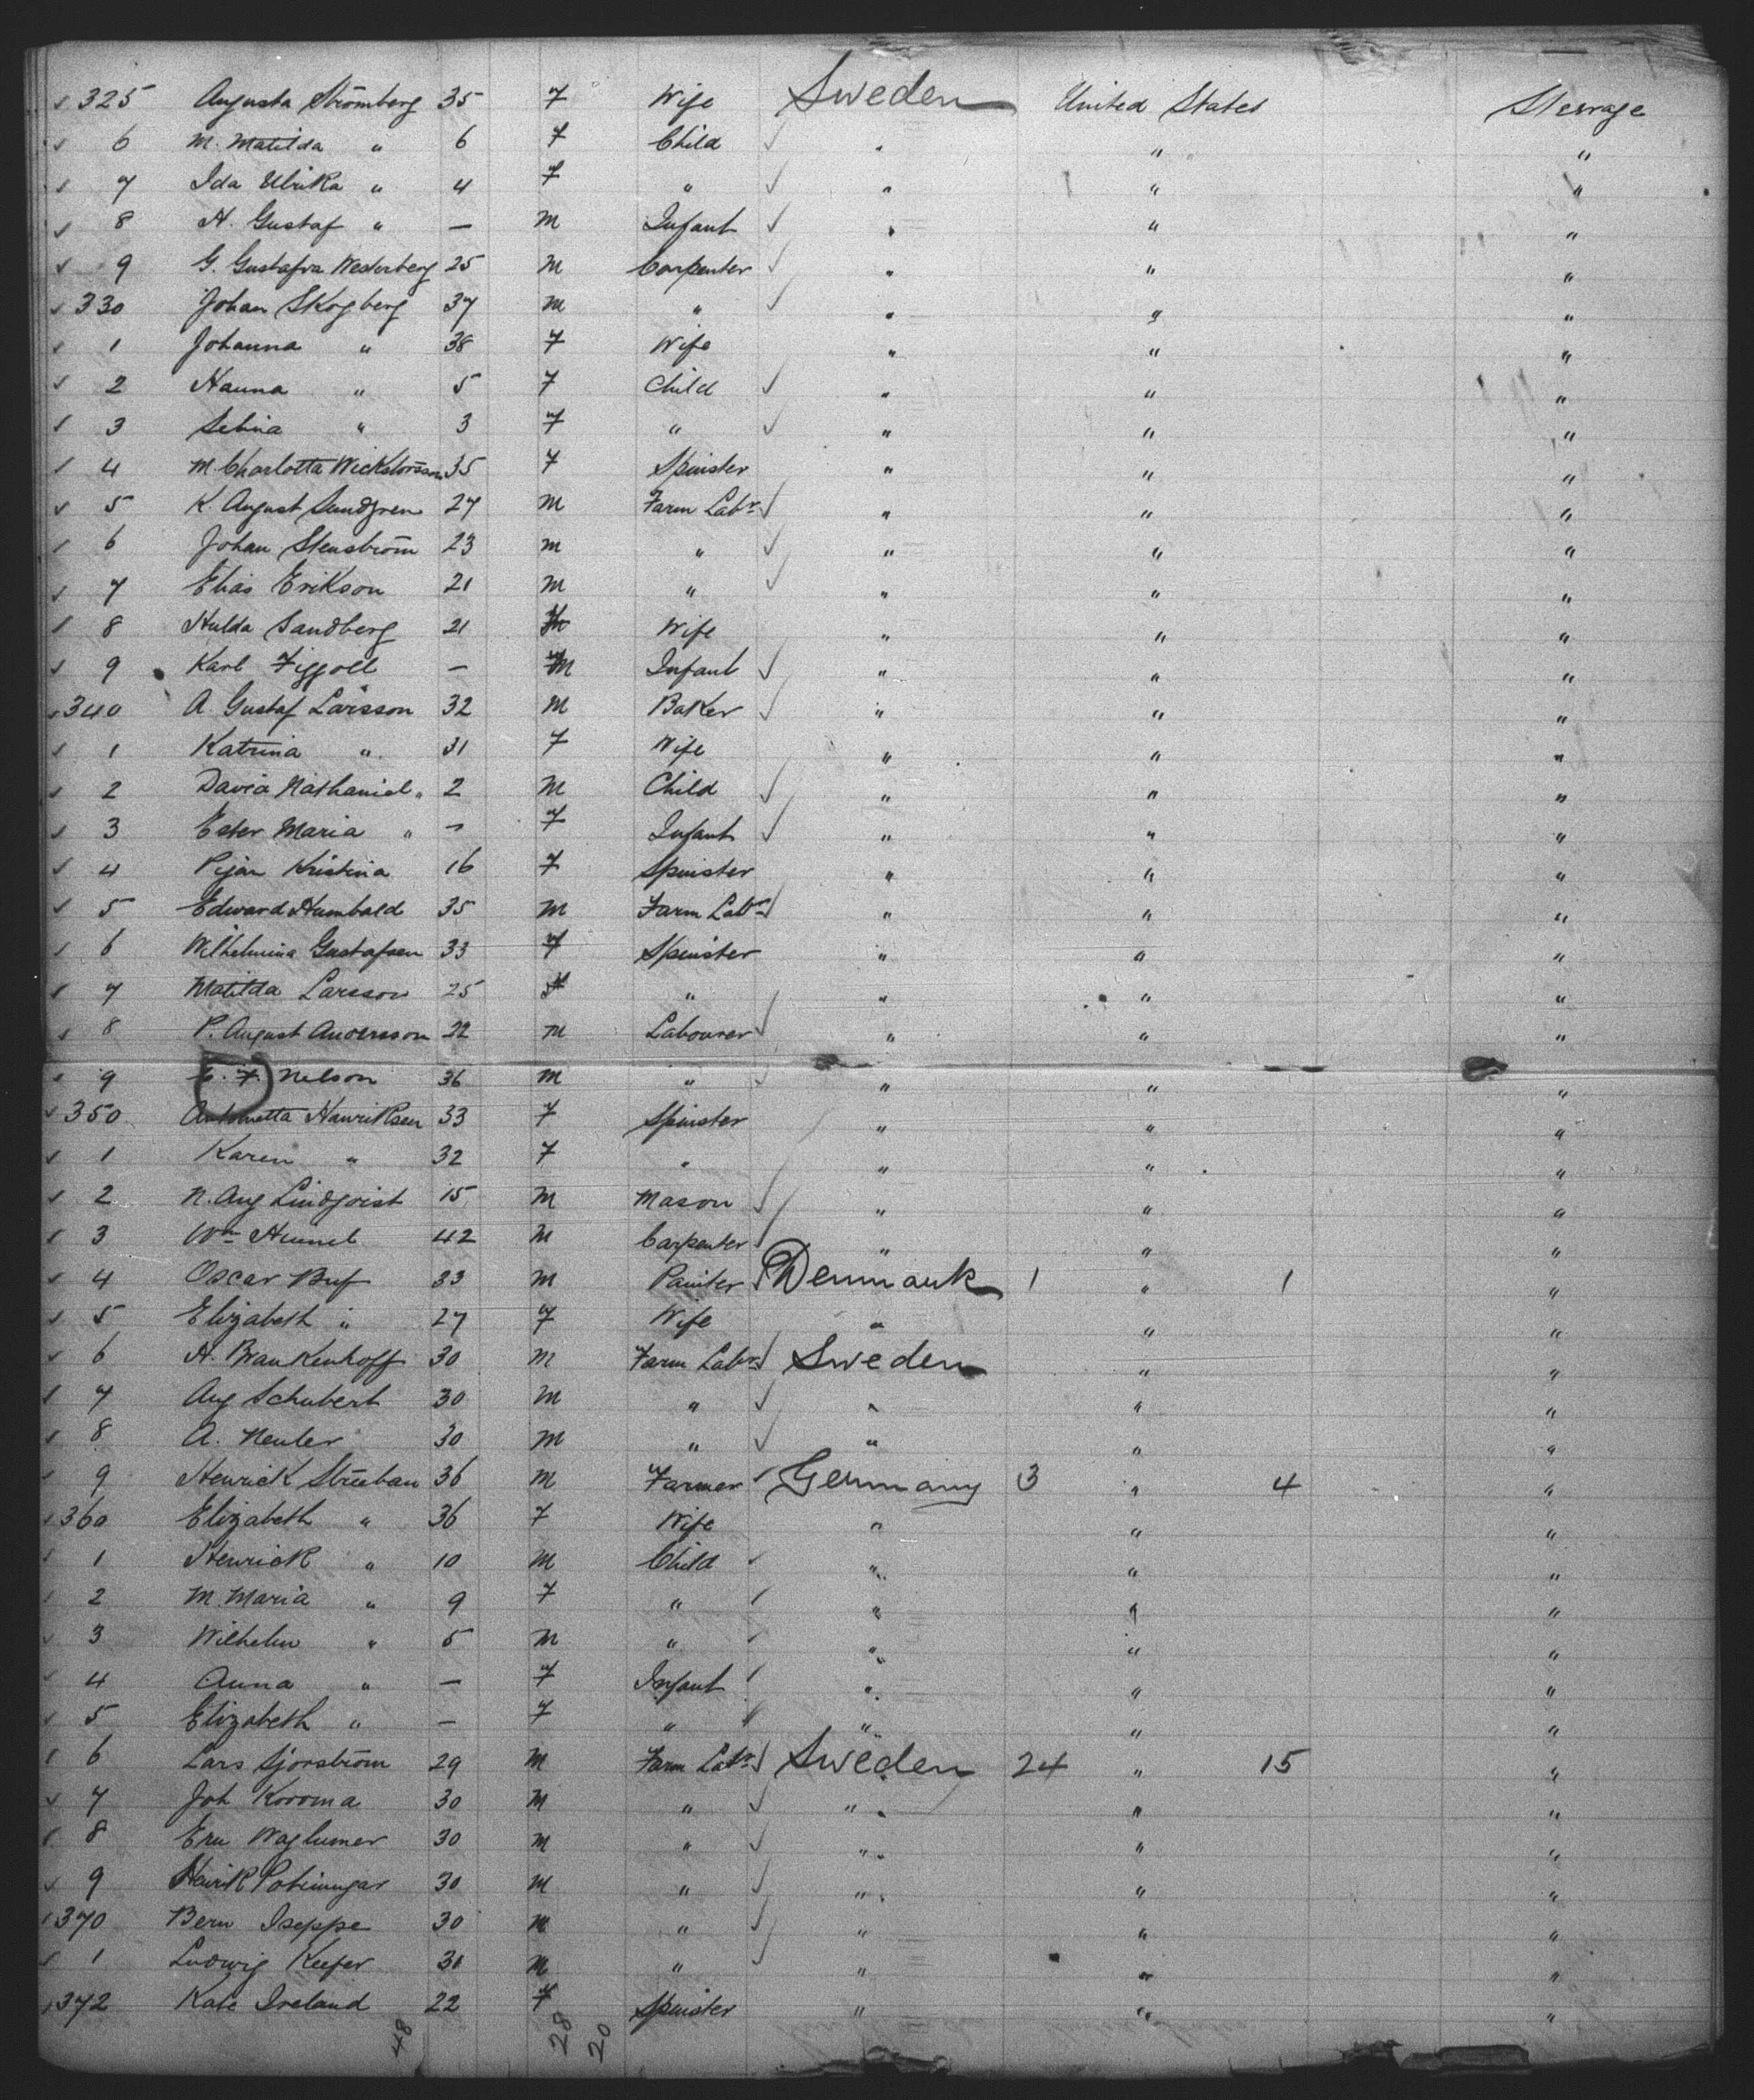 325 Augusta Strömberg 35 F Wife Sweden United States Steerage
6 M. Matilda " 6 F Child " " "
7 Ida Ulrika " 4 F " " " "
8 H. Gustaf " — M Infant " " "
9 G. Gustafva Wederberg 25 M Carpenter " " "
330 Johan Skogberg 37 M " " " "
1 Johanna " 38 F Wife " " "
2 Hanna " 5 F Child " " "
3 Selina " 3 F " " " "
4 M. Charlotta 35 F Spinster " " "
5 K. August Sundgren 27 M Farm Labr " " "
6 Johan Stenström 23 M " " " "
7 Elias Erikson 21 M " " " "
8 Hulda Sandberg 21 Wife " " "
9 Karl — M Infant " " "
340 A. Gustaf Larsson 32 M Baker " " "
1 Katrina " 31 F Wife " " "
2 David Nathaniel " 2 M Child " " "
3 Ester Maria " — F Infant " " "
4 Kristina 16 F Spinster " " "
5 Edward Humbald 35 M Farm Labr " " "
6 Wilhelmina Gustafsen 33 F Spinster " " "
7 Matilda Larsson 25 F " " " "
8 P. August Andersson 22 M Labourer " " "
9 E. F. Nelson 36 M " " " "
350 Antonetta Hanriksen 33 F Spinster " " "
1 Karen " 32 F " " " "
2 N. Aug Lindqvist 15 M Mason " " "
3 Wm Hummel 42 M Carpenter " " "
4 Oscar Buf 33 M Painter Denmark 1 " 1 "
5 Elizabeth " 27 F Wife " " "
6 H. Brankenhoff 30 M Farm Labr Sweden " "
7 Aug Schubert 30 M " " " "
8 A. Neuler 30 M " " " "
9 Henrick Streeban 36 M Farmer Germany 3 " 4 "
360 Elizabeth " 36 F Wife " " "
1 Henrick " 10 M Child " " "
2 M. Maria " 9 F " " " "
3 Wilhelm " 5 M " " " "
4 Anna " — F Infant " " "
5 Elizabeth " — F " " " "
6 Lars Sjorström 29 M Farm Labr Sweden 24 " 15 "
7 Joh Koroma 30 M " " " "
8 Eru Waglumer 30 M " " " "
9 Henrik 30 M " " " "
370 Bern Iseppe 30 M " " " "
1 Ludwig Keefer 30 M " " " "
372 Kate Ireland 22 F Spinster " " "
48 28 20